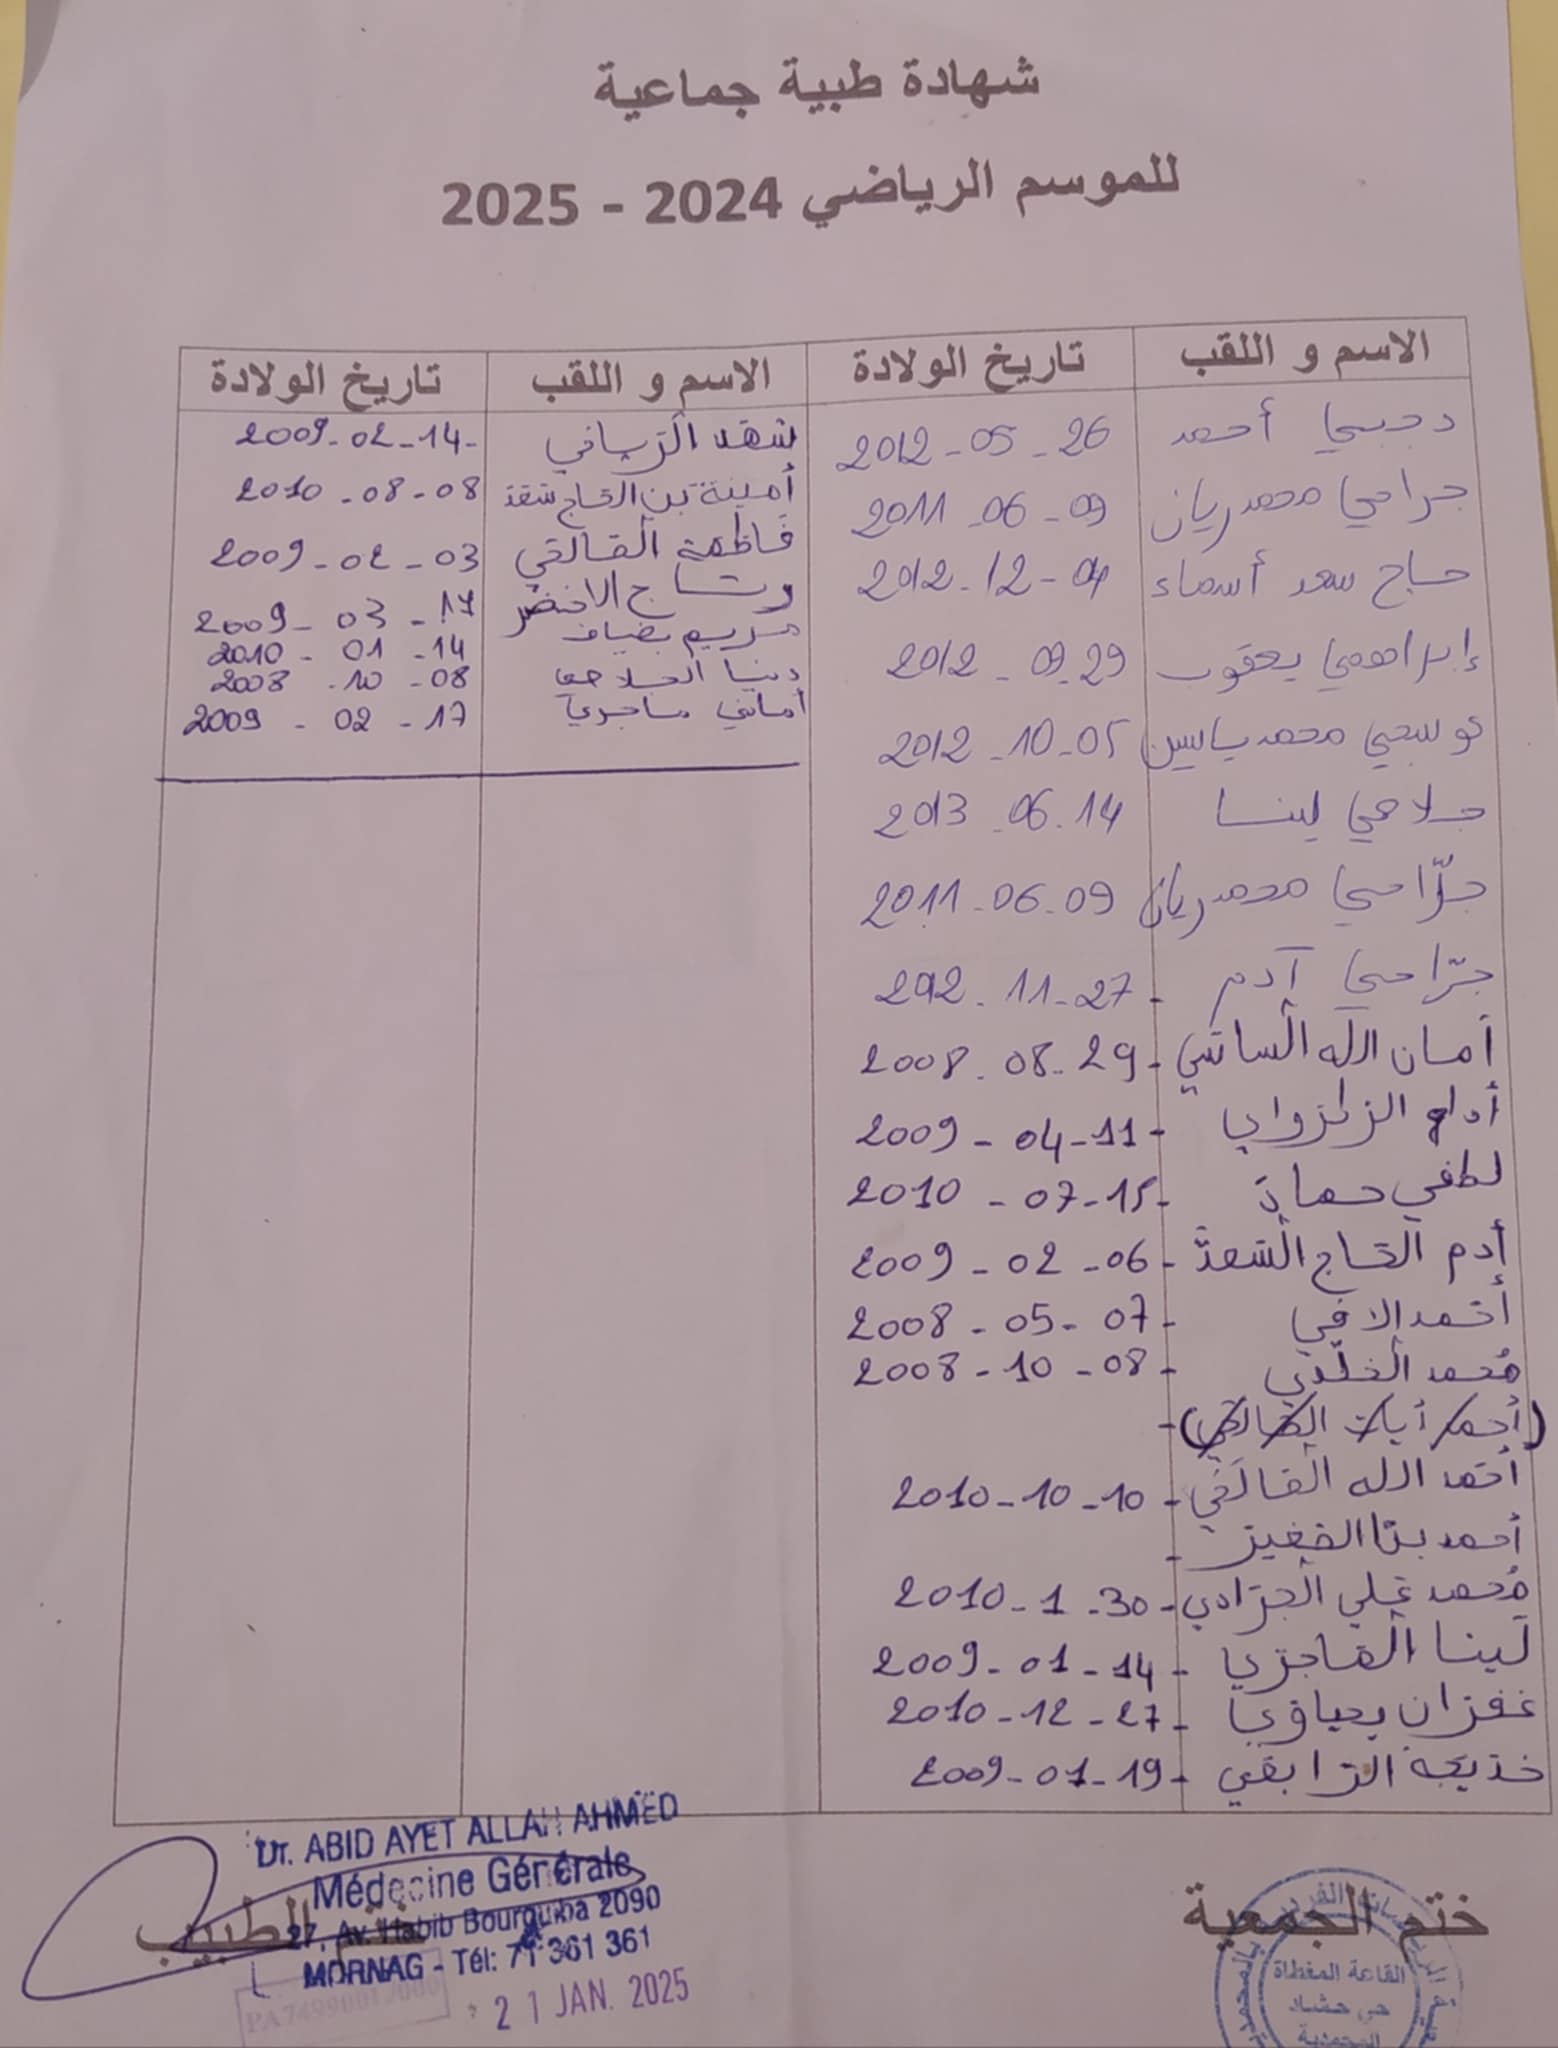 شهادة طبية جماعية
للموسم الرياضي 2024 - 2025
الاسم و اللقب تاريخ الولادة الاسم و اللقب تاريخ الولادة
دجبي أحمد 26 - 05 - 2012
جرامي محمد ريان 09 - 06 - 2011
حاج سعد أسماء 04 - 12 - 2012
إبراهمي يعقوب 29 . 09 - 2012
محمد ياسين 05 - 10 - 2012
جلاصي لينا 14 . 06 - 2013
جرّامي محمد ريان 09 - 06 - 2011
جرّامي آدم - 27 - 11 - 2012
أمان الله - 29 - 08 - 2008
- 11 - 04 - 2009
لطفي حمادة - 15 - 07 - 2010
أدم الحاج السّعد - 06 - 02 - 2009
أحمد - 07 - 05 - 2008
محمد - 08 - 10 - 2008
أحمد الله - 10 - 10 - 2010
أحمد -
محمد علي - 30 - 1 - 2010
لينا الماجري - 14 - 01 - 2009
غفران يحياوي - 27 - 12 - 2010
خديجة الرابقي - 19 - 01 - 2009
شهد الرّياني - 14 - 02 - 2009
أمينة بن الحاج سعد 08 - 08 - 2010
فاطمة 03 - 02 - 2009
الاخضر 17 - 03 - 2009
مريم بضياف 14 - 01 - 2010
دينا الجلاصي 08 - 10 - 2008
أماني ماجري 17 - 02 - 2009
ختم الجمعية
ختم الطبيب
Dr. ABID AYET ALLAH AHMED
Médecine Générale
27, Av. Habib Bourguiba 2090
MORNAG - Tél: 71 361 361
21 JAN. 2025
القاعة المغطاة
حي حشاد
المحمدية